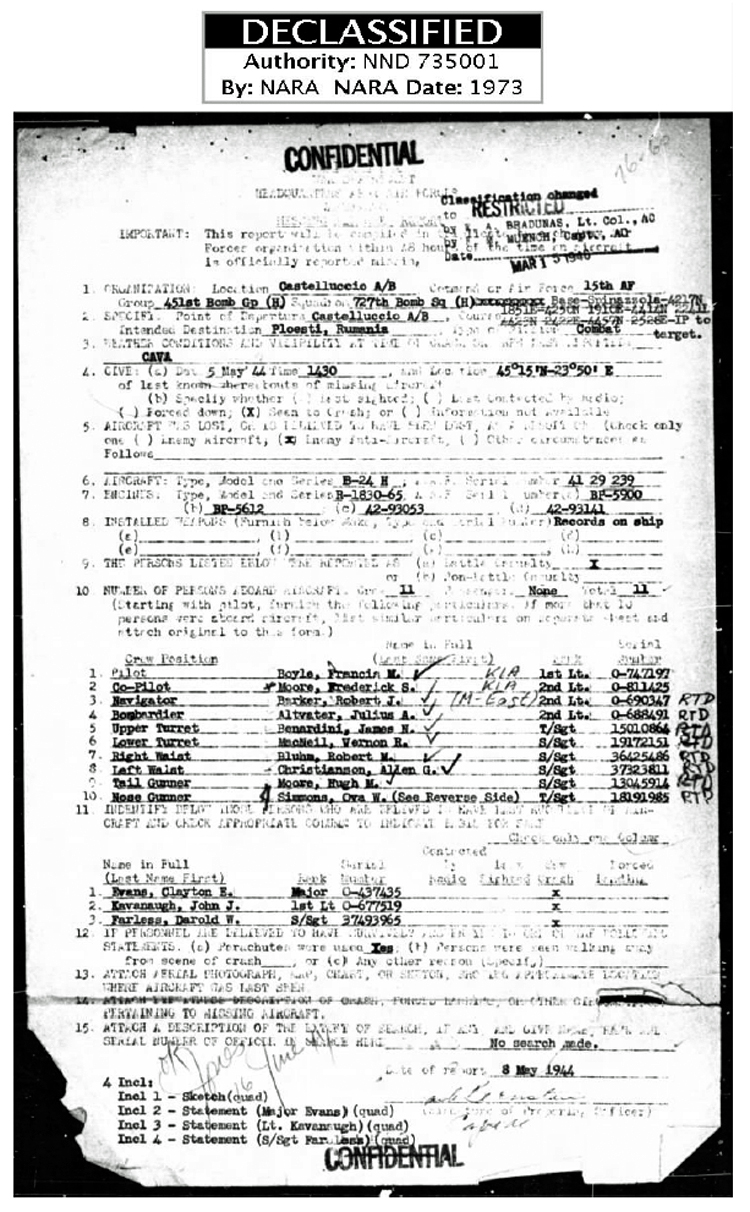 DECLASSIFIED
Authority: NND 735001
By: NARA NARA Date: 1973
CONFIDENTIAL
76-60
HEADQUARTERS
Classification changed
to RESTRICTED
BRADUNAS, Lt. Col., AC
MUENCH, Capt., AC
Date MAR 1 5 1946
IMPORTANT: This report will be compiled in
Forces organization within 48 hours of the time an aircraft
is officially reported missing.
1. ORGANIZATION: Location Castelluccio A/B Command or Air Force 15th AF
Group 451st Bomb Gp (H) Squadron 727th Bomb Sq (H) Base-Spinazzola-4217N
2. SPECIFY: Point of Departure Castelluccio A/B Course
Intended Destination Ploesti, Rumania Combat
2528E-IP to target.
3. WEATHER CONDITIONS AND VISIBILITY AT TIME OF
CAVA
4. GIVE: (a) Day 5 May '44 Time 1430, and Location 45°15'N-23°50' E
of last known whereabouts of missing aircraft
(b) Specify whether ( ) Last sighted; ( ) Last Contacted by Radio;
( ) Forced down; (X) Seen to Crash; or ( ) Information not Available
5. AIRCRAFT WAS LOST, OR IS BELIEVED TO HAVE BEEN LOST, AS A RESULT OF: (Check only
one ( ) Enemy Aircraft, (X) Enemy Anti-Aircraft, ( ) Other circumstances as
Follows
6. AIRCRAFT: Type, Model and Series B-24 H, Serial Number 41 29 239
7. ENGINES: Type, Model and Series R-1830-65, BP-5900
(b) BP-5612 (c) 42-93053 (d) 42-93141
8. INSTALLED WEAPONS (Furnish below Make, Type and Serial Number) Records on ship
(a) (b) (c) (d)
(e) (f) (g) (h)
9. THE PERSONS LISTED BELOW WERE REPORTED AS (a) Battle Casualty X
or (b) Non-Battle Casualty
10 NUMBER OF PERSONS ABOARD AIRCRAFT: Crew 11 Passengers None Total 11
(Starting with pilot, furnish the following particulars. If more than 10
persons were aboard aircraft, list similar particulars on separate sheet and
attach original to this form.)
Name in Full Serial
Crew Position (Last Name First) Rank Number
1. Pilot Boyle, Francis M. KIA 1st Lt. O-747197
2 Co-Pilot Moore, Frederick S. KIA 2nd Lt. O-811425
3. Navigator Barker, Robert J. (M-East) 2nd Lt. O-690347 RTD
4 Bombardier Altvater, Julius A. 2nd Lt. O-688491 RTD
5 Upper Turret Benardini, James N. T/Sgt 15010864 RTD
6 Lower Turret MacNeil, Vernon R. S/Sgt 19172151 RTD
7. Right Waist Bluhm, Robert M. S/Sgt 36425486 RTD
8. Left Waist Christianson, Allen G. S/Sgt 37323811 RTD
9. Tail Gunner Moore, Hugh M. S/Sgt 13045914 RTD
10. Nose Gunner Simmons, Ova W. (See Reverse Side) T/Sgt 18191985 RTD
11. IDENTIFY BELOW THOSE PERSONS WHO ARE BELIEVED TO HAVE LAST KNOWLEDGE OF AIR-
CRAFT AND CHECK APPROPRIATE COLUMN TO INDICATE BASIS FOR SAME
Check only one Column
Contacted
Name in Full Serial by Last Saw Forced
(Last Name First) Rank Number Radio Sighted Crash Landing
1. Evans, Clayton E. Major O-437435 x
2. Kavanaugh, John J. 1st Lt O-677519 x
3. Farless, Darold W. S/Sgt 37493965 x
12. IF PERSONNEL ARE BELIEVED TO HAVE SURVIVED
STATEMENTS. (a) Parachutes were used Yes; (b) Persons were seen walking away
from scene of crash, or (c) Any other reason (Specify)
13. ATTACH AERIAL PHOTOGRAPH, MAP, CHART, OR SKETCH, SHOWING APPROXIMATE LOCATION
WHERE AIRCRAFT WAS LAST SEEN.
14. ATTACH DESCRIPTION OF CRASH, FORCED LANDING, OR OTHER
PERTAINING TO MISSING AIRCRAFT.
15. ATTACH A DESCRIPTION OF THE EXTENT OF SEARCH, IF ANY, AND GIVE NAME, RANK AND
SERIAL NUMBER OF OFFICER IN CHARGE HERE No search made.
OK Jones June
16
Date of report 8 May 1944
4 Incl:
Incl 1 - Sketch(quad)
Incl 2 - Statement (Major Evans) (quad) (Signature of Preparing Officer)
Incl 3 - Statement (Lt. Kavanaugh) (quad)
Incl 4 - Statement (S/Sgt Farless) (quad)
CONFIDENTIAL